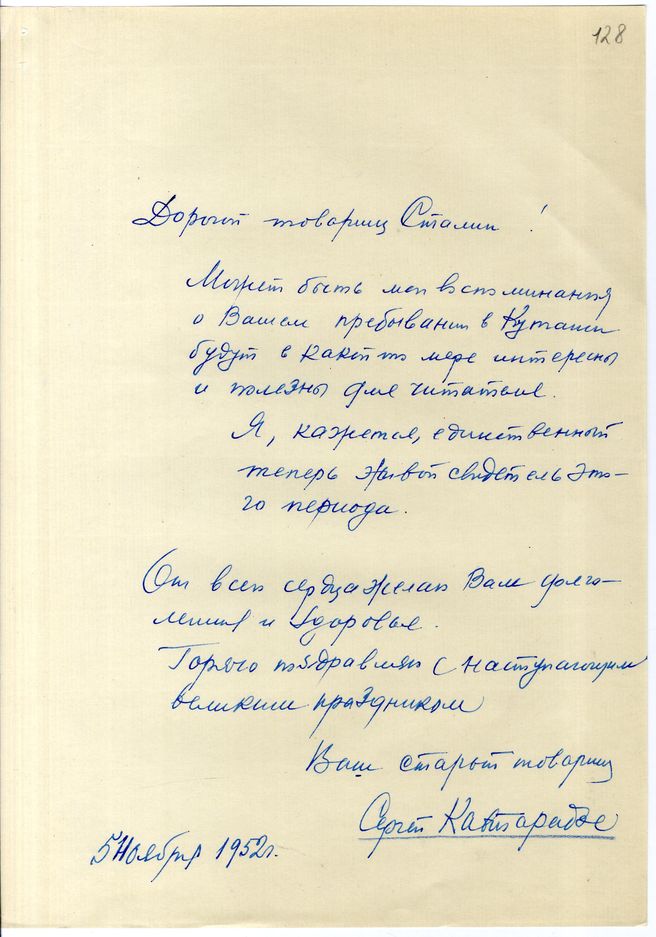 128
Дорогой товарищ Сталин!
Может быть мои воспоминания
о Вашем пребывании в Кутаиси
будут в какой то мере интересны
и полезны для читателя.
Я, кажется, единственный
теперь живой свидетель это-
го периода.
От всего сердца желаю Вам долго-
летия и здоровья.
Горячо поздравляю с наступающим
великим праздником
Ваш старый товарищ
Сергей Кавтарадзе
5 Ноября 1952 г.